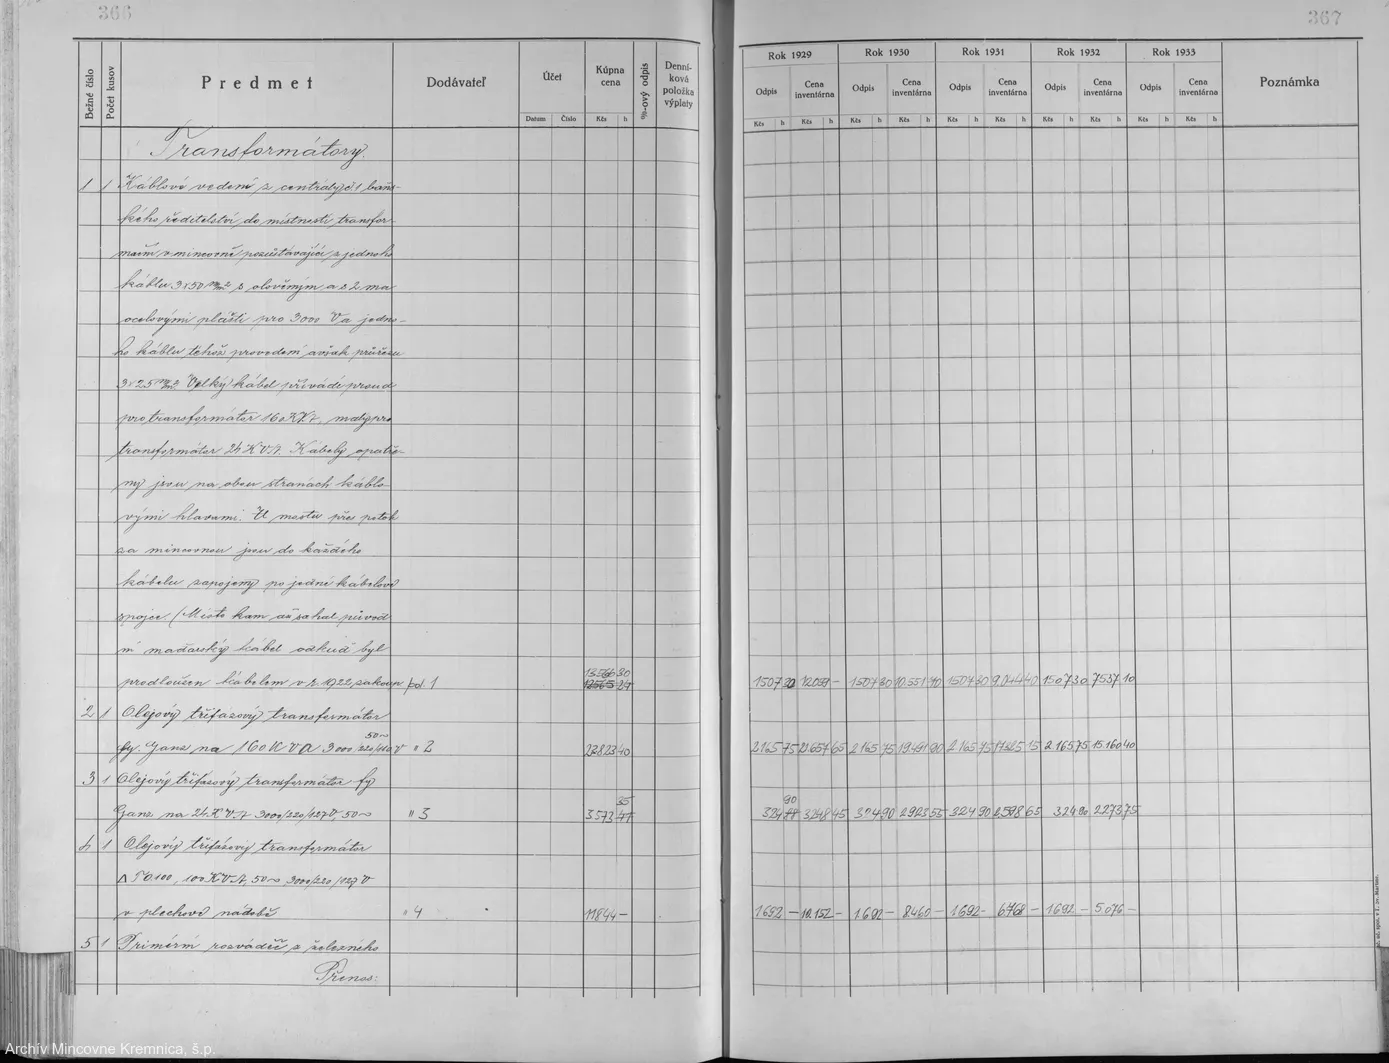 366
367
Bežné číslo
Počet kusov
Predmet
Dodávateľ
Účet
Datum Číslo
Kúpna cena
Kčs h
%-ový odpis
Denní-ková položka výplaty
Rok 1929 Rok 1930 Rok 1931 Rok 1932 Rok 1933
Odpis Cena inventárna Odpis Cena inventárna Odpis Cena inventárna Odpis Cena inventárna Odpis Cena inventárna
Kčs h Kčs h Kčs h Kčs h Kčs h Kčs h Kčs h Kčs h Kčs h Kčs h
Poznámka
Transformátory
1 1 Káblové vedení z centrály č 1 báň-
ského ředitelství do místnosti transfor-
v mincovně pozůstávající z jednoho
káblu 3x50 m/m2 s olověným a s 2 ma
ocelovými plášti pro 3000 V a jedno-
ho káblu téhož provedení avšak průřezu
3x25 m/m2 Velký kábel přivádí proud
pro transformátor 160 KVA, malý pro
transformátor 24 KVA. Kábely opatře-
ny jsou na obou stranách káblo-
vými hlavami. U mostu přes potok
za mincovnou jsou do každého
kábelu zapojeny po jedné kábelové
spojce. (Místo kam až sahal původ
ní maďarský kábel odkud byl
prodloužen kábelem v r. 1922 zakoup. pol. 1 13566 30 1507 30 12059 - 1507 30 10.551 70 1507 30 9.044 40 1507 30 7537 10
2 1 Olejový třífázový transformátor
fy. Ganz na 160 KVA 3000/220/110 V 50~ " 2 23823 40 2165 75 21657 65 2165 75 19491 90 2165 75 17325 15 2.165 75 15.160 40
3 1 Olejový třífázový transformátor fy
Ganz na 24 KVA 3000/220/127 V, 50~ " 3 3573 35 324 90 3248 45 324 90 2923 55 324 90 2598 65 324 90 2273 75
4 1 Olejový třífázový transformátor
100 KVA, 50~ 3000/220/127 V
v plechové nádobě " 4 11844 - 1692 - 10.152 - 1.692 - 8460 - 1692 - 6768 - 1692 - 5.076 -
5 1 Primérní rozváděč z železného
Přenos:
Archív Mincovne Kremnica, š.p.